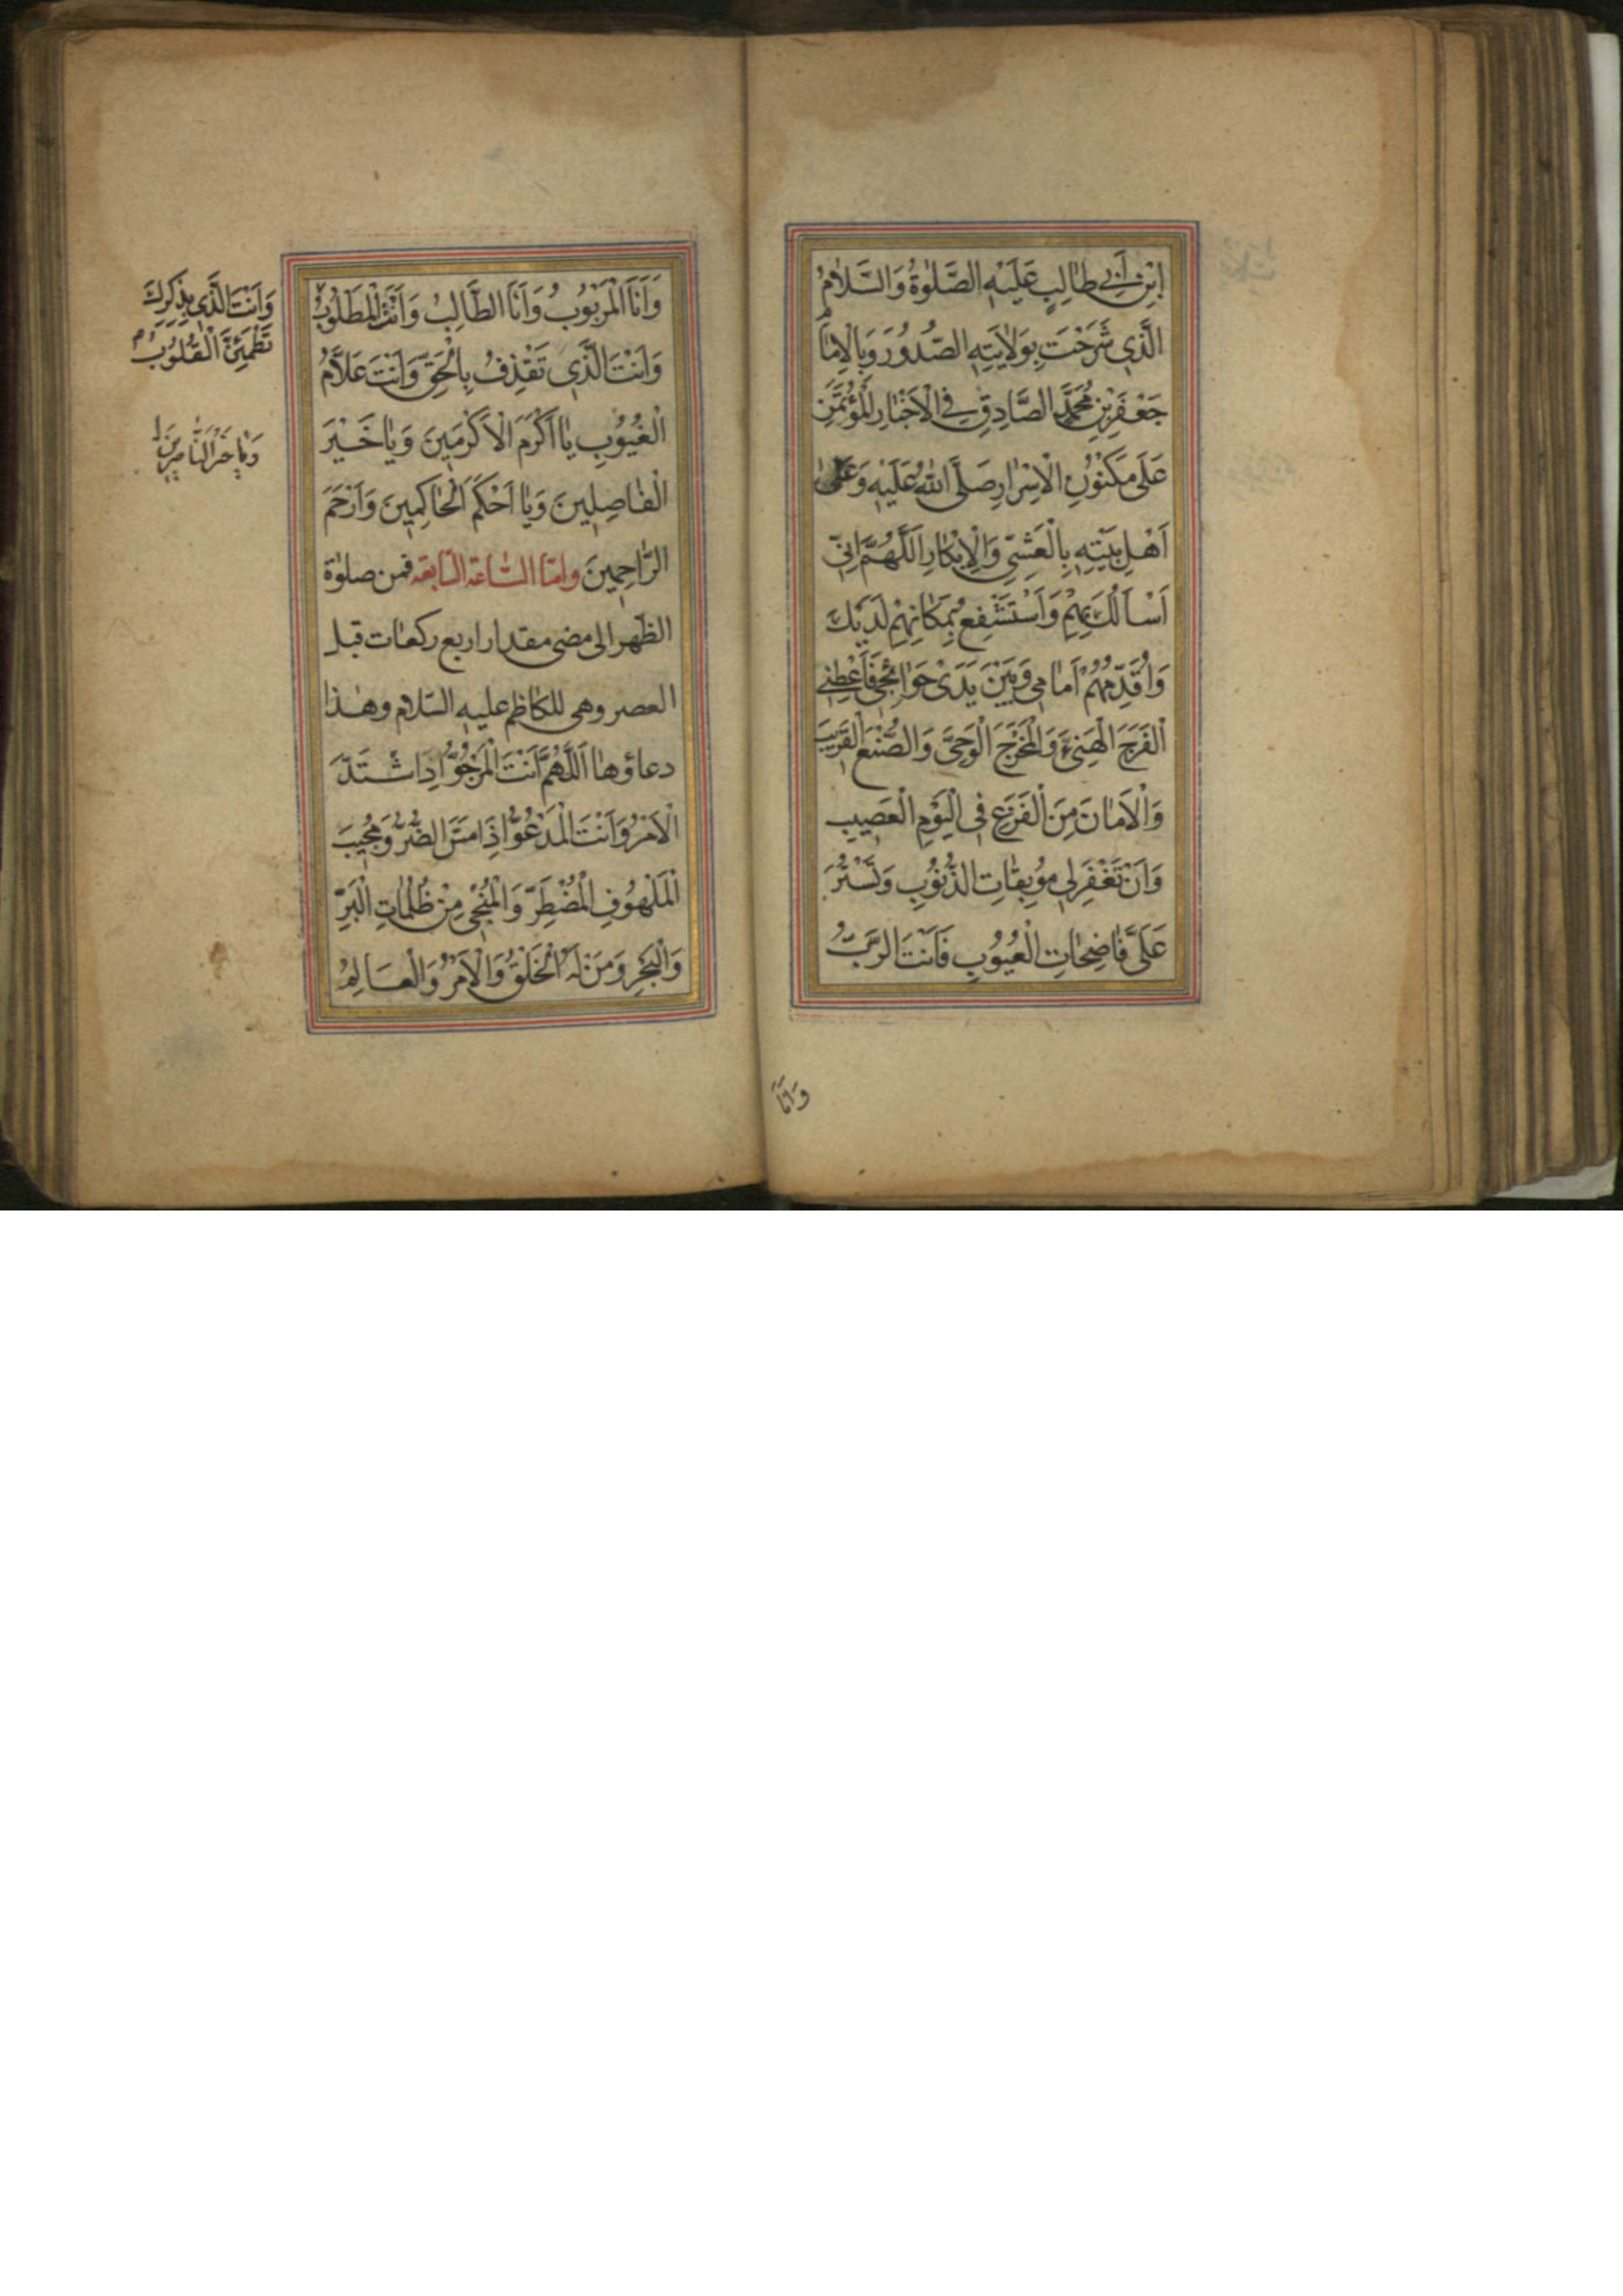 ابْنِ أَبِي طَالِبٍ عَلَيْهِ الصَّلٰوةُ وَالسَّلَامُ
الَّذِي شَرَحْتَ بِوَلَايَتِهِ الصُّدُورَ وَبِالْاِمَامِ
جَعْفَرِ بْنِ مُحَمَّدٍ الصَّادِقِ فِي الْاَخْبَارِ الْمُؤْتَمَنِ
عَلَى مَكْنُونِ الْاَسْرَارِ صَلَّى اللهُ عَلَيْهِ وَعَلٰى
اَهْلِ بَيْتِهِ بِالْعَشِيِّ وَالْاِبْكَارِ اَللَّهُمَّ اِنِّي
اَسْاَلُكَ بِهِمْ وَاَسْتَشْفِعُ بِمَكَانِهِمْ لَدَيْكَ
وَاُقَدِّمُهُمْ اَمَامِي وَبَيْنَ يَدَيْ حَوَائِجِي فَاَعْطِنِي
الْفَرَجَ الْهَنِيءَ وَالْمَخْرَجَ الْوَحِيَّ وَالصُّنْعَ الْقَرِيبَ
وَالْاَمَانَ مِنَ الْفَزَعِ فِي الْيَوْمِ الْعَصِيبِ
وَاَنْ تَغْفِرَ لِي مُوبِقَاتِ الذُّنُوبِ وَتَسْتُرَ
عَلَيَّ فَاضِحَاتِ الْعُيُوبِ فَاَنْتَ الرَّبُّ
وَاَنَا
وَاَنَا الْمَرْبُوبُ وَاَنَا الطَّالِبُ وَاَنْتَ الْمَطْلُوبُ
وَاَنْتَ الَّذِي بِذِكْرِكَ
تَطْمَئِنُّ الْقُلُوبُ
وَاَنْتَ الَّذِي تَقْذِفُ بِالْحَقِّ وَاَنْتَ عَلَّامُ
الْغُيُوبِ يَا اَكْرَمَ الْاَكْرَمِينَ وَيَا خَيْرَ
الْفَاصِلِينَ وَيَا اَحْكَمَ الْحَاكِمِينَ وَاَرْحَمَ
وَيَا خَيْرَ النَّاصِرِينَ
الرَّاحِمِينَ وامّا السّاعة السّابعة فمن صلوٰة
الظهر الى مضى مقدار اربع ركعات قبل
العصر وهى للكاظم عليه السّلام وهٰذا
دعاؤها اَللَّهُمَّ اَنْتَ الْمَرْجُوُّ اِذَا اشْتَدَّ
الْاَمْرُ وَاَنْتَ الْمَدْعُوُّ اِذَا مَسَّ الضُّرُّ وَمُجِيبُ
الْمَلْهُوفِ الْمُضْطَرِّ وَالْمُنْجِي مِنْ ظُلُمَاتِ الْبَرِّ
وَالْبَحْرِ وَمَنْ لَهُ الْخَلْقُ وَالْاَمْرُ وَالْعَالِمُ